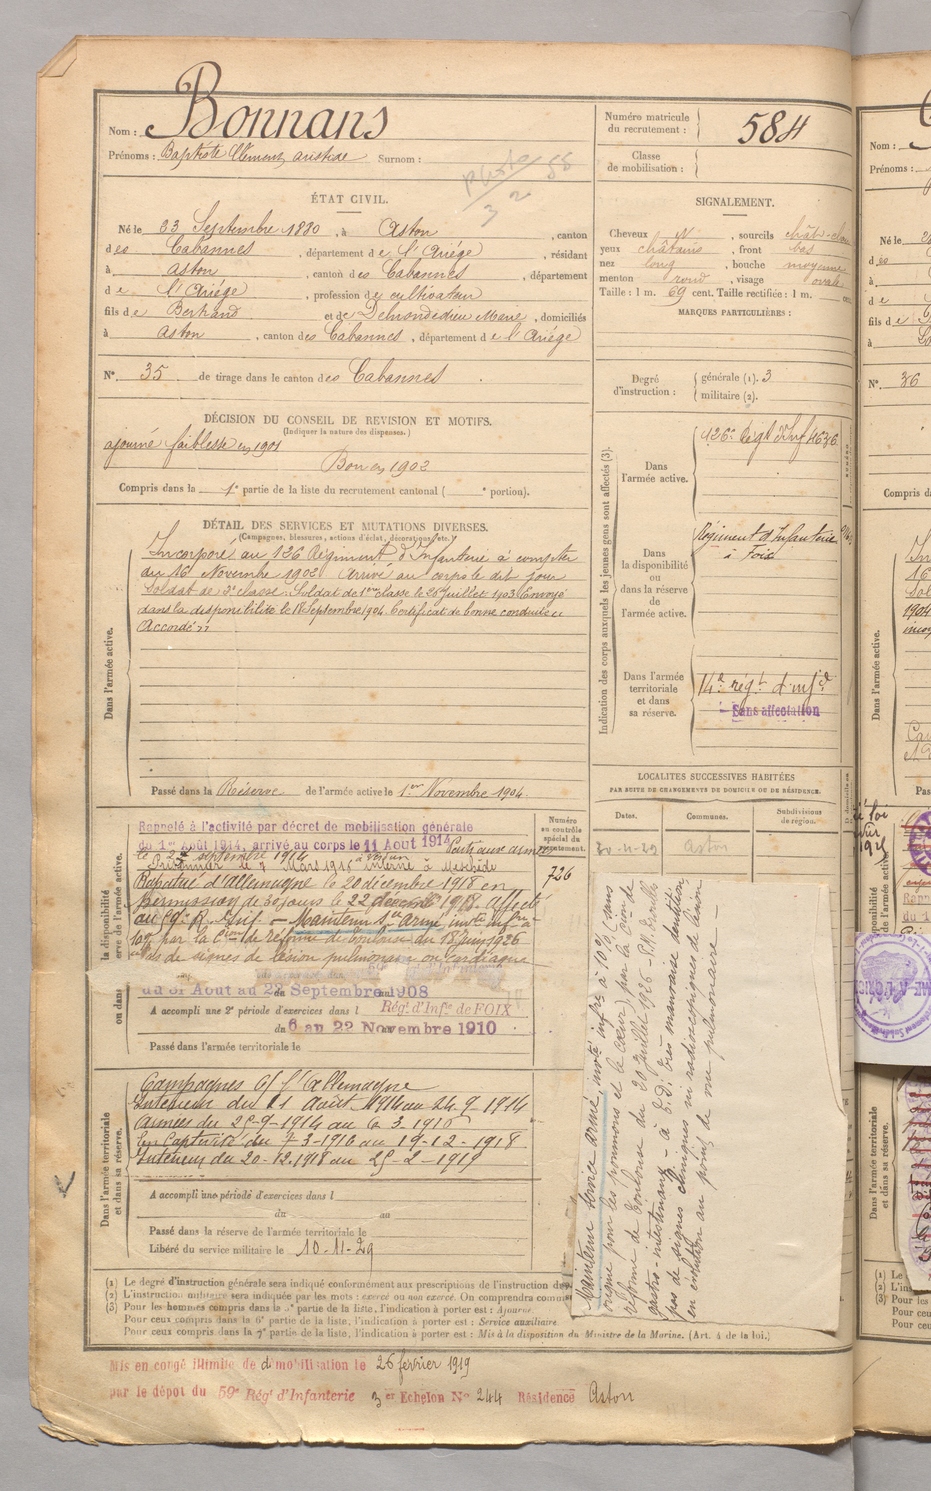 Nom : Bonnans
Prénoms : Baptiste Clément Aristide Surnom :
Numéro matricule
du recrutement : 584
Classe
de mobilisation :
ÉTAT CIVIL.
Né le 23 Septembre 1880, à Aston, canton
des Cabannes, département de l'Ariége, résidant
à Aston, canton des Cabannes, département
de l'Ariége, profession de cultivateur
fils de Bertrand et de Delmondedieu Marie, domiciliés
à Aston, canton des Cabannes, département de l'Ariége
N° 35 de tirage dans le canton des Cabannes.
SIGNALEMENT.
Cheveux N, sourcils
yeux châtains, front bas
nez long, bouche moyenne
menton rond, visage ovale
Taille : 1 m. 69 cent. Taille rectifiée : 1 m. cent.
MARQUES PARTICULIÈRES :
Degré
d'instruction :
générale (1). 3
militaire (2).
DÉCISION DU CONSEIL DE REVISION ET MOTIFS.
(Indiquer la nature des dispenses.)
ajourné faiblesse en 1901
Bon en 1902
Compris dans la 1e partie de la liste du recrutement cantonal ( e portion).
DÉTAIL DES SERVICES ET MUTATIONS DIVERSES.
(Campagnes, blessures, actions d'éclat, décorations, etc.)
Dans l'armée active.
Incorporé au 126 Régiment d'Infanterie à compter
du 16 Novembre 1902 Arrivé au corps le dit jour
Soldat de 2e classe. Soldat de 1ere classe le 26 juillet 1903. Envoyé
dans la disponibilité le 18 Septembre 1904. Certificat de bonne conduite
Accordé
Passé dans la Réserve de l'armée active le 1er Novembre 1904.
Indication des corps auxquels les jeunes gens sont affectés (3).
Dans
l'armée active.
126e Régt d'Inf 4636
Dans
la disponibilité
ou
dans la réserve
de
l'armée active.
Régiment d'Infanterie
à Foix
Dans l'armée
territoriale
et dans
sa réserve.
14e régt d'infie
Sans affectation
LOCALITÉS SUCCESSIVES HABITÉES
PAR SUITE DE CHANGEMENTS DE DOMICILE OU DE RÉSIDENCE.
Dates. Communes. Subdivisions
de région.
30-11-29 Aston
Numéro
au contrôle
spécial du
recrutement.
726
Rappelé à l'activité par décret de mobilisation générale
du 1er Août 1914, arrivé au corps le 11 Aout 1914
le septembre 1914
Prisonnier le 7 Mars 1916 à Verdun interné à
Rapatrié d'Allemagne le 20 décembre 1918 en
permission de 30 jours le 22 décembre 1918. Affecté
au 59e R. Inf. – Maintenu Ser armé, invté infre à
10% par la Cion de réforme de Toulouse du 18 juin 1926
pas de signes de lésion pulmonaire ou cardiaque
du 31 Aout au 22 Septembre 1908
A accompli une 2e période d'exercices dans l Régt d'Infie de FOIX
du 6 au 22 Novembre 1910
Passé dans l'armée territoriale le
Dans l'armée territoriale
et dans sa réserve.
Campagnes c/ l'Allemagne
Intérieur du 11 août 1914 au 24.9.1914
Armées du 25-9-1914 au 6.3.1916
En Captivité du 7-3-1916 au 19-12-1918
Intérieur du 20-12.1918 au 25-2-1919
A accompli une période d'exercices dans l
du au
Passé dans la réserve de l'armée territoriale le
Libéré du service militaire le 10-11-29
Maintenu service armé, invté infre à 10% (sans
origine pour les poumons et le cœur), par la Cion de
réforme de Toulouse du 20 juillet 1926
gastro-intestinaux - à E.G. très mauvaise dentition,
pas de signes cliniques ni radioscopiques de lésion
en évolution au point de vue pulmonaire –
(1) Le degré d'instruction générale sera indiqué conformément aux prescriptions de l'instruction du
(2) L'instruction militaire sera indiquée par les mots : exercé ou non exercé. On comprendra comme
(3) Pour les hommes compris dans la 5e partie de la liste, l'indication à porter est : Ajourné.
Pour ceux compris dans la 6e partie de la liste, l'indication à porter est : Service auxiliaire.
Pour ceux compris dans la 7e partie de la liste, l'indication à porter est : Mis à la disposition du Ministre de la Marine. (Art. 4 de la loi.)
Mis en congé illimité de démobilisation le 26 février 1919
par le dépot du 59e Régt d'Infanterie 3er Echelon N° 244 Résidence Aston